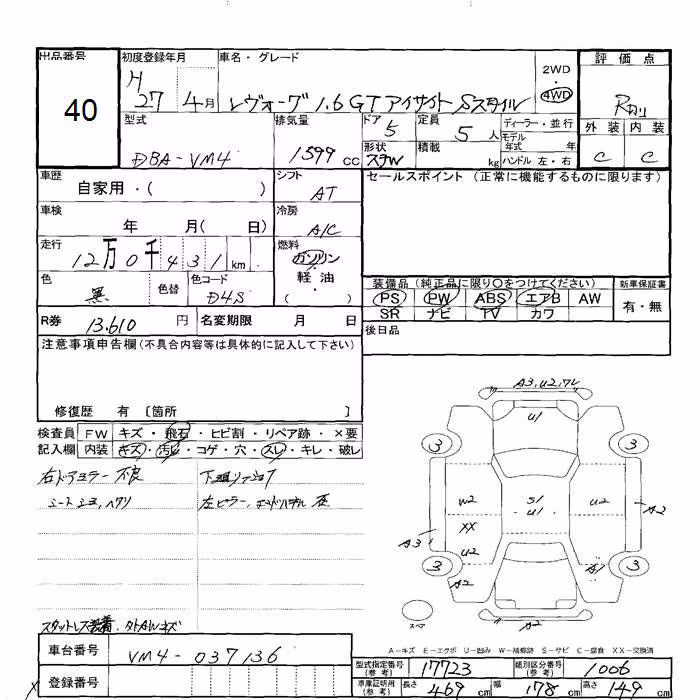 出品番号
40
初度登録年月
H 27 4月
車名・グレード
レヴォーグ 1.6GT アイサイト Sスタイル
2WD
4WD
評価点
R
外装 内装
C C
型式
DBA-VM4
排気量
1599 cc
ドア 5
定員 5 人
ディーラー・並行
モデル年式 年
形状
積載 kg
ハンドル 左・右
車歴
自家用・( )
シフト
AT
セールスポイント (正常に機能するものに限ります)
車検
年 月( 日)
冷房
A/C
走行
12万0千431 km
燃料
ガソリン
軽・油
( )
色
黒
色替
色コード
D4S
装備品 (純正品に限り〇をつけてください)
PS PW ABS エアB AW
SR ナビ TV カワ
新車保証書
有・無
R券
13,610 円
名変期限 月 日
後日品
注意事項申告欄 (不具合内容等は具体的に記入して下さい)
修復歴 有 〔箇所 〕
検査員 FW キズ・飛石・ヒビ割・リペア跡・×要
記入欄 内装 キズ・汚れ・コゲ・穴・スレ・キレ・破レ
右ドアミラー 不良
シート
左ピラー、
スタットレス装着
A3, U2, ワレ
U1
3 3
W2
XX
U2
S1
U1
U2
A2
A3
3 3
A2
A1
A2
スペア
A-キズ E-エクボ U-凹み W-補修跡 S-サビ C-腐食 XX-交換済
車台番号
VM4-037136
登録番号
型式指定番号 (参考)
17723
類別区分番号 (参考)
1006
車庫証明用 (参考)
長さ 469 cm
幅 178 cm
高さ 149 cm